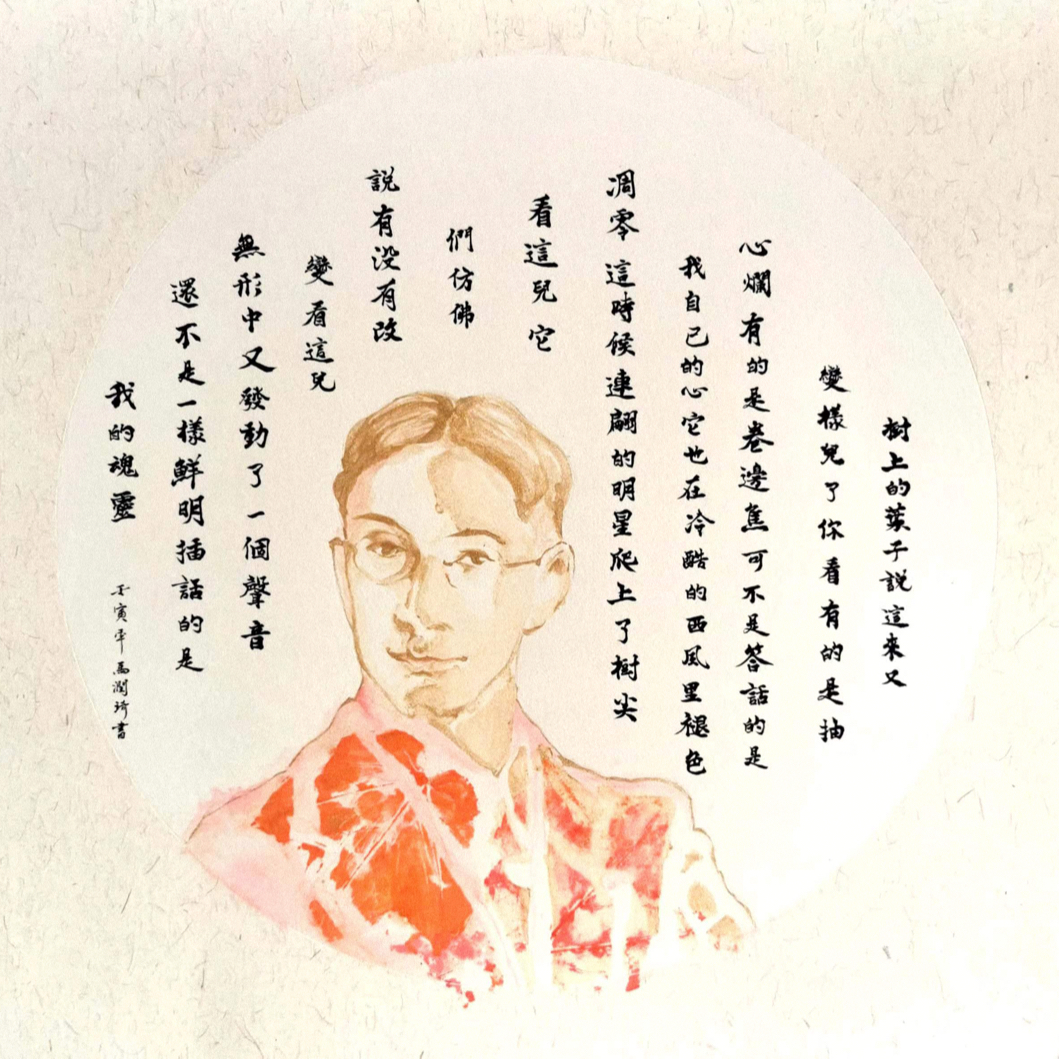 樹上的葉子說這來又
變樣兒了你看有的是抽
心爛有的是卷邊焦可不是答話的是
我自己的心它也在冷酷的西風里褪色
凋零這時候連翩的明星爬上了樹尖
看這兒它
們仿佛
說有没有改
變看這兒
無形中又發動了一個聲音
還不是一樣鮮明插話的是
我的魂靈
壬寅年馬潤琦書